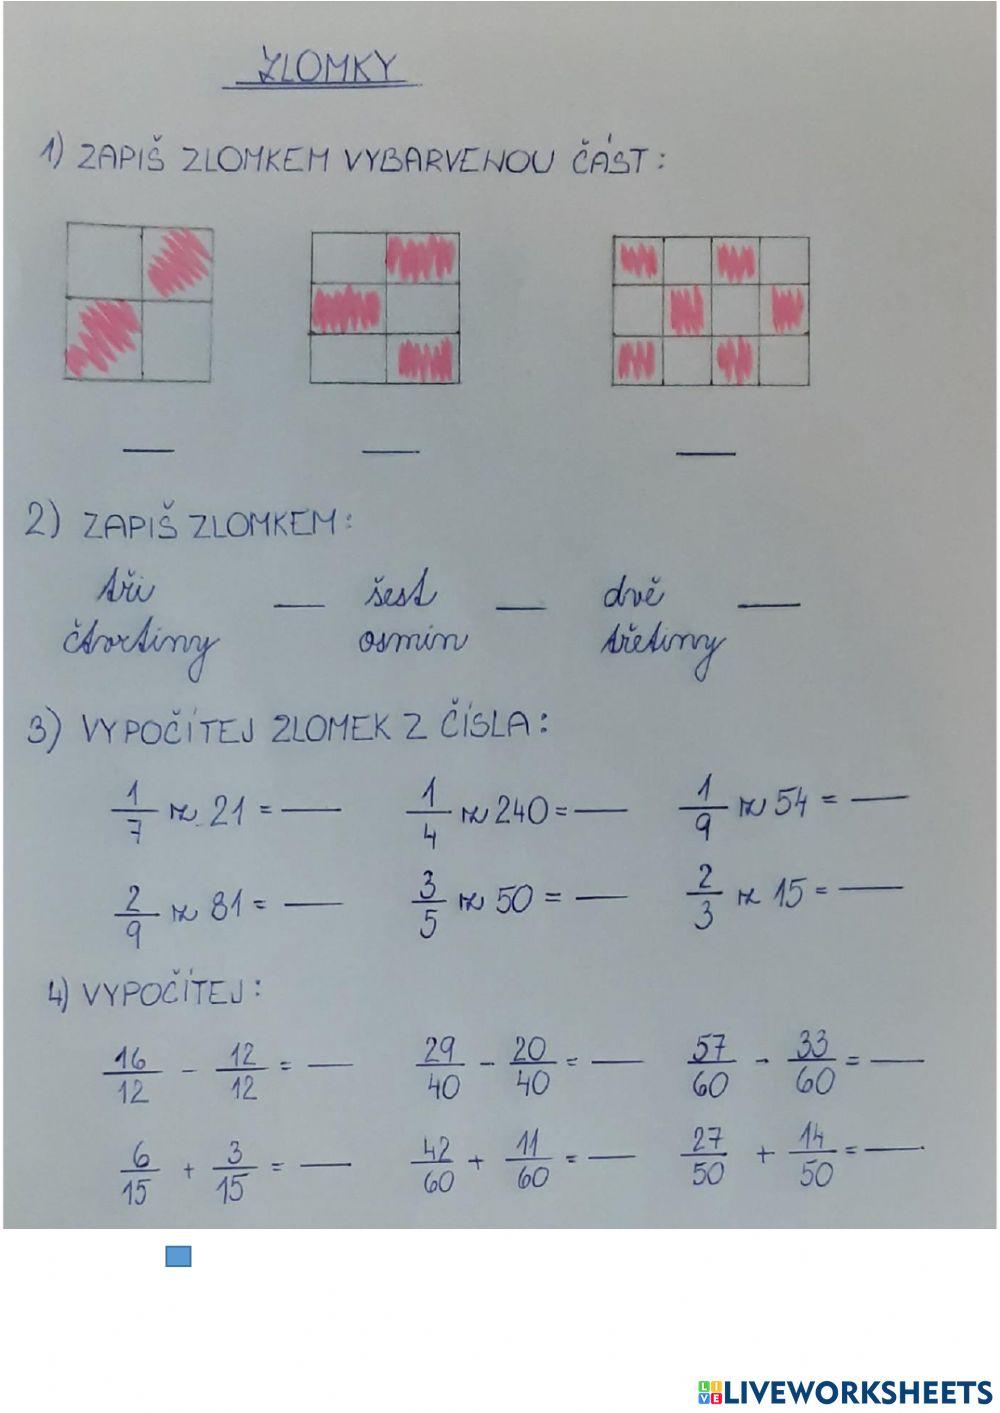 ZLOMKY
1) ZAPIŠ ZLOMKEM VYBARVENOU ČÁST:
2) ZAPIŠ ZLOMKEM:
tři čtvrtiny — šest osmin — dvě třetiny —
3) VYPOČÍTEJ ZLOMEK Z ČÍSLA:
1/7 z 21 = — 1/4 z 240 = — 1/9 z 54 = —
2/9 z 81 = — 3/5 z 50 = — 2/3 z 15 = —
4) VYPOČÍTEJ:
16/12 - 12/12 = — 29/40 - 20/40 = — 57/60 - 33/60 = —
6/15 + 3/15 = — 42/60 + 11/60 = — 27/50 + 14/50 = —
LIVE LIVEWORKSHEETS